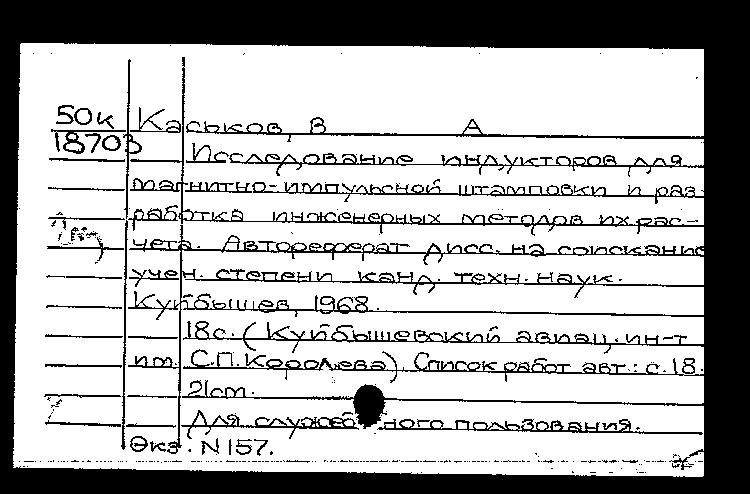 50к Каськов, В А
18703
Исследование индукторов для
магнитно-импульсной штамповки и раз-
работка инженерных методов их рас-
чета. Автореферат дисс. на соискание
учен. степени канд. техн. наук.
Куйбышев, 1968.
18с. (Куйбышевский авиац. ин-т
им. С.П.Королева). Список работ авт.: с.18.
21cm.
Для служебного пользования.
Экз. N157.